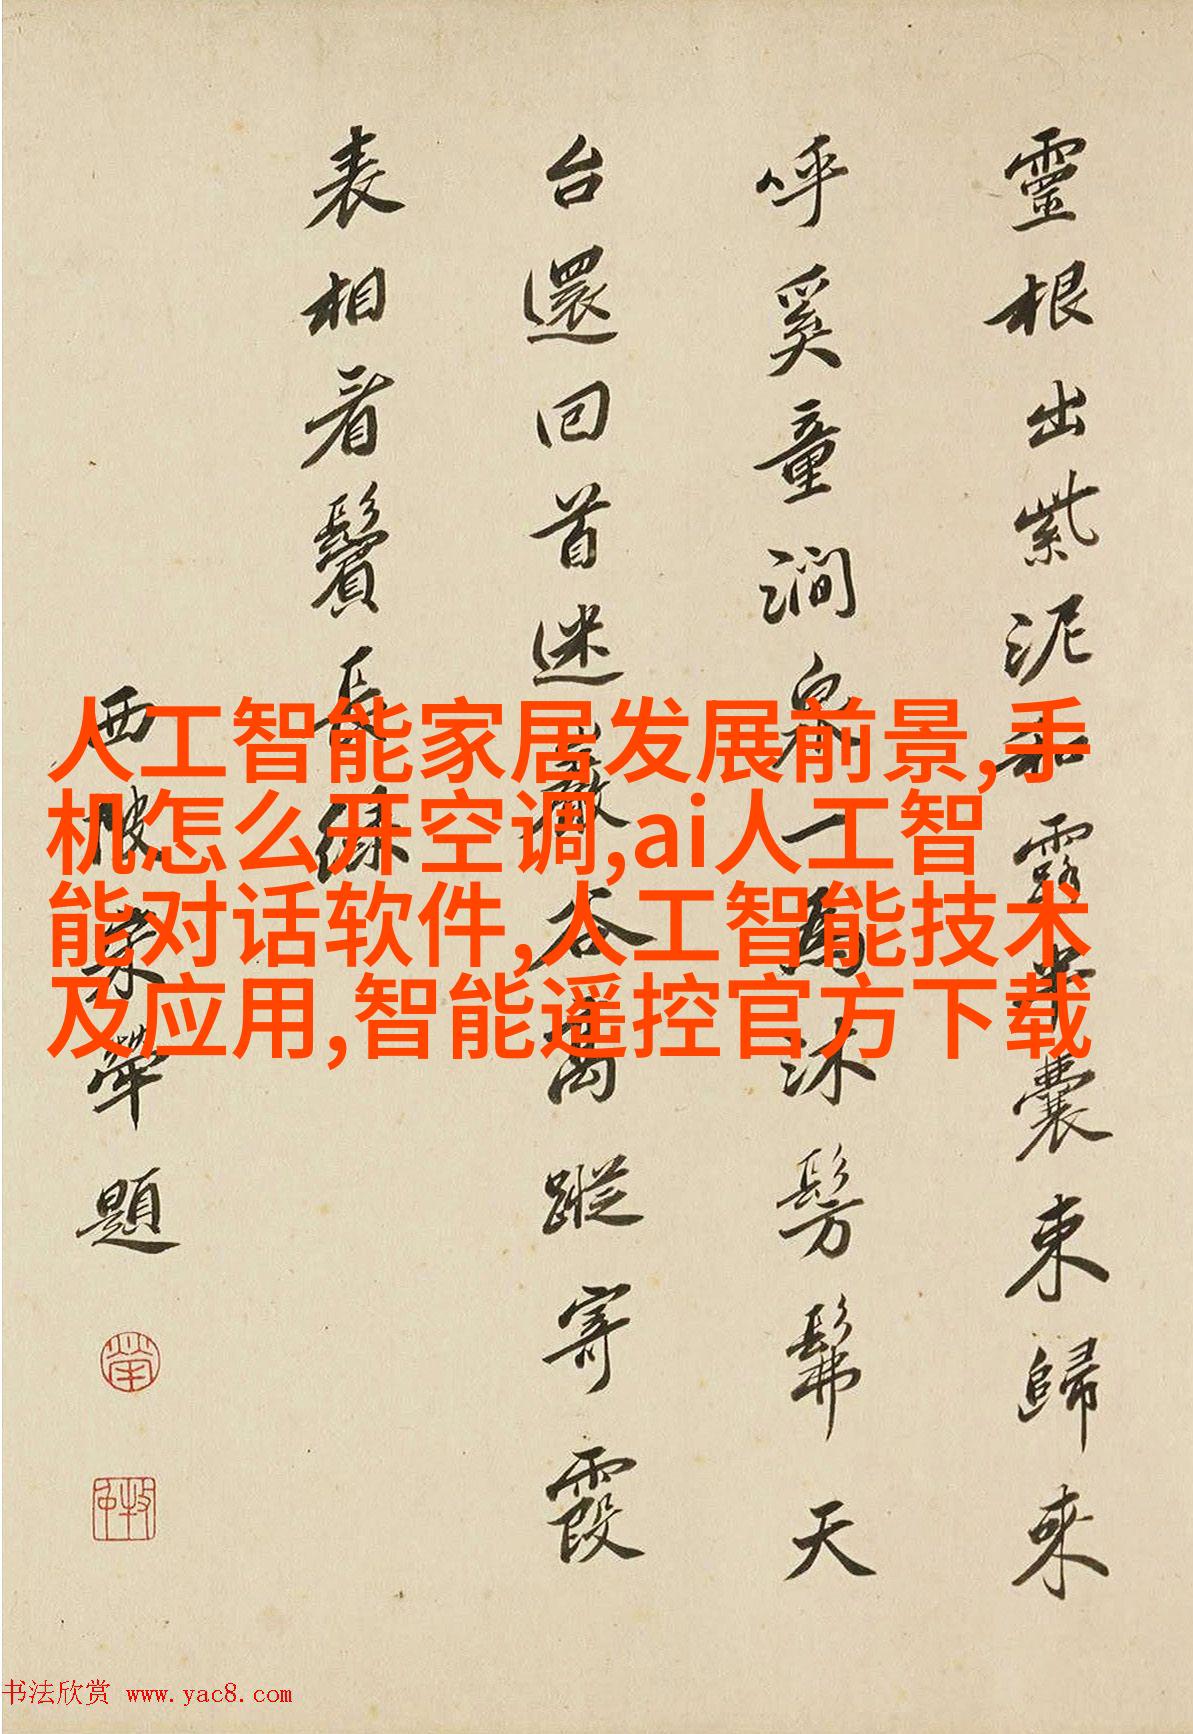 靈根出紫泥和露半囊束歸來
呼奚童澗泉一為沐髣髴天
台還回首迷巖谷高蹤寄霞
表相看鬢長綠
西陂宋犖題
人工智能家居发展前景,手
机怎么开空调,ai人工智
能对话软件,人工智能技术
及应用,智能遥控官方下载
书法欣赏 www.yac8.com